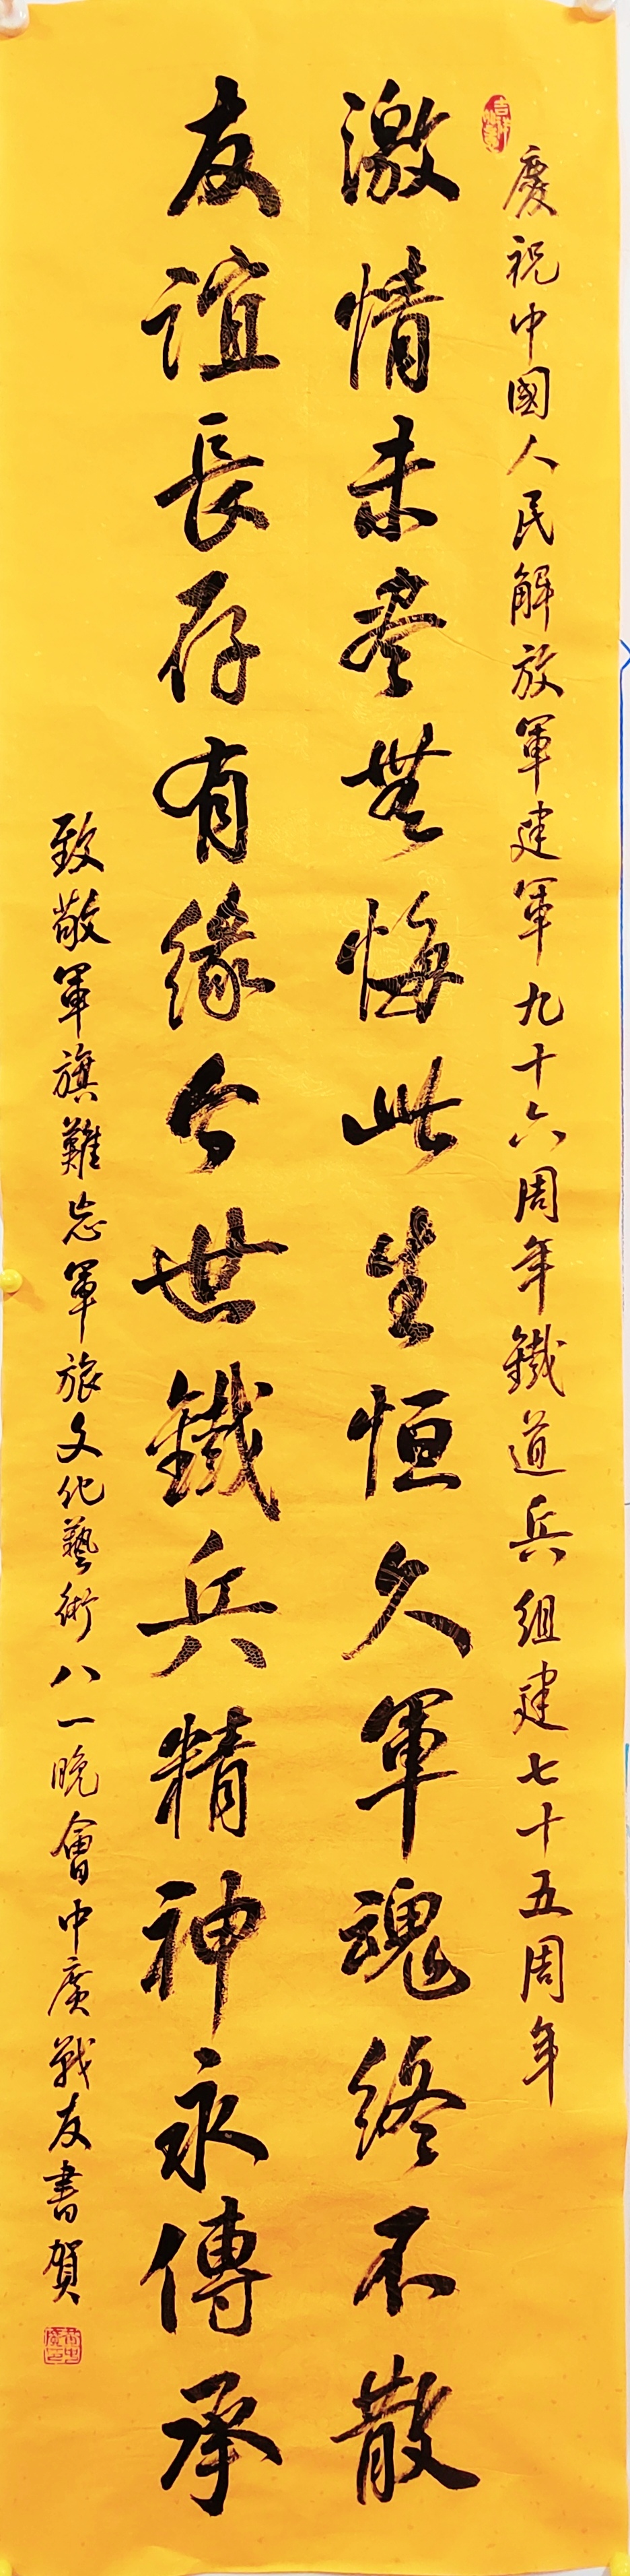 慶祝中國人民解放軍建軍九十六周年鐵道兵組建七十五周年
激情未盡無悔此生恒久軍魂終不散
友誼長存有緣今世鐵兵精神永傳承
致敬軍旗難忘軍旅文化藝術八一晚會中廣戰友書賀